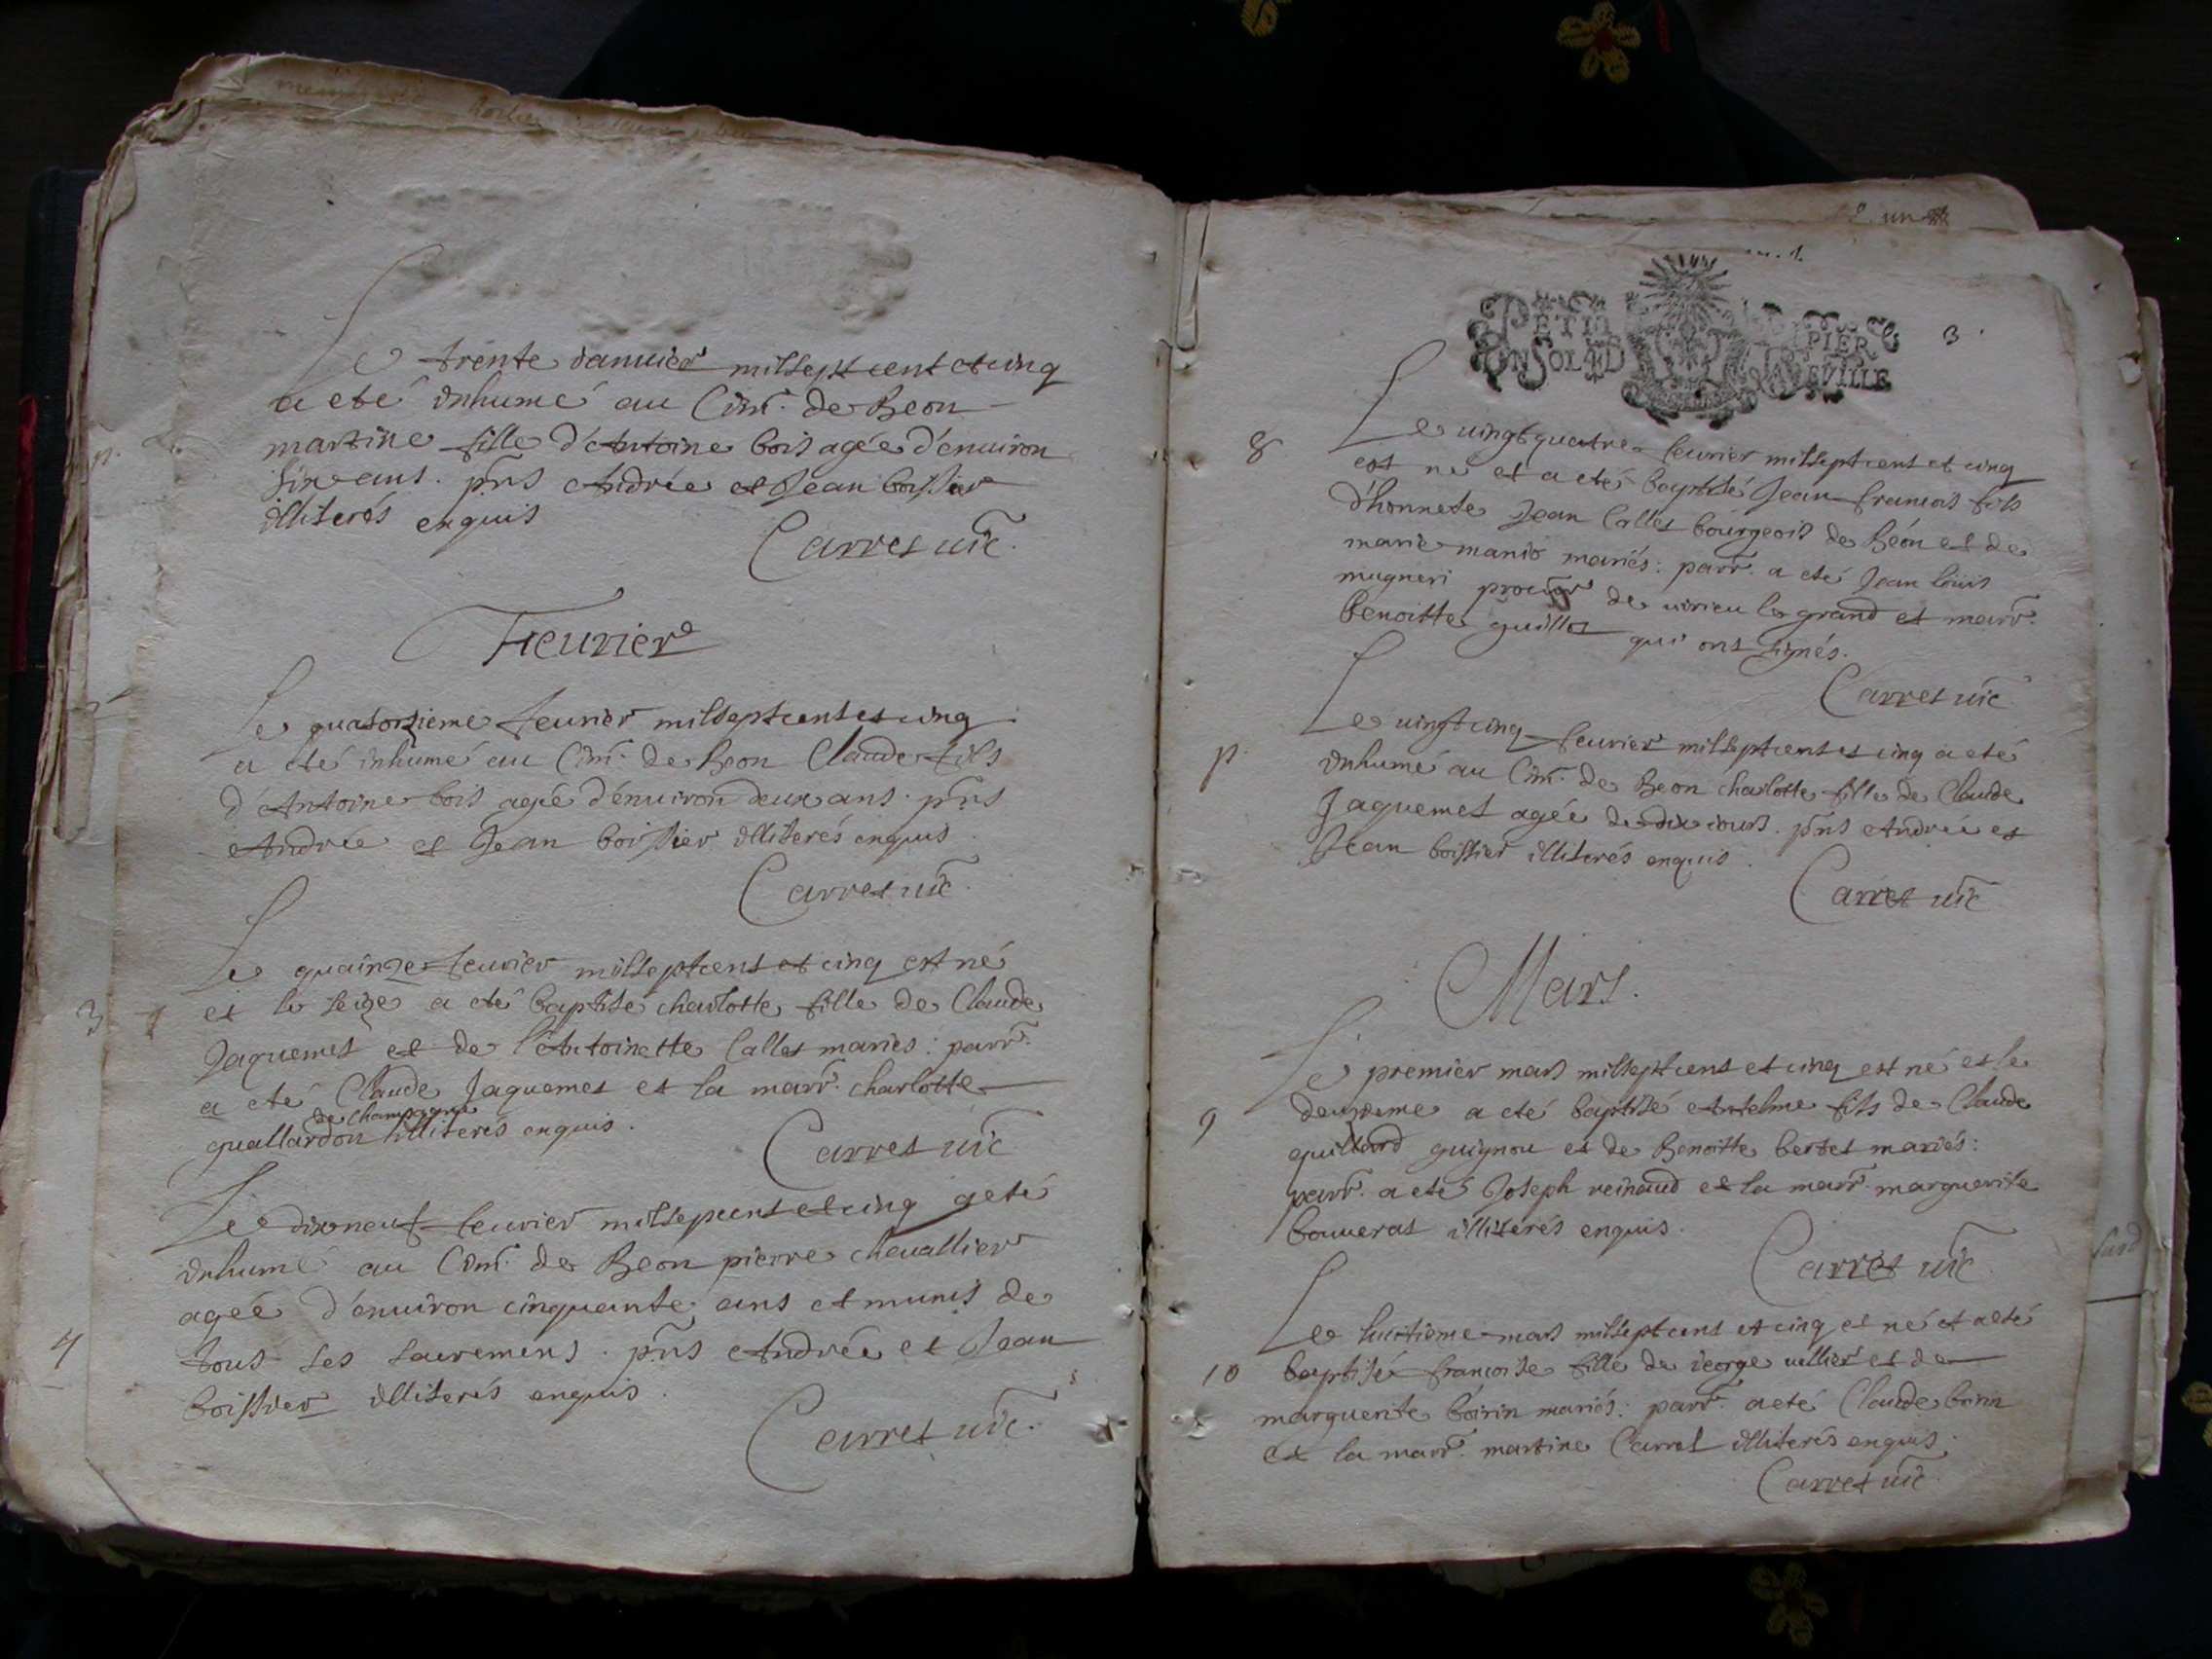 Le trente janvier mil sept cent et cinq
a eté inhumé au Cim. de Beon
martine fille d'Antoine bois agée d'enuiron
six ans. pñs Andrée et Jean boissier
illiterés enquis
Carret vic.
Feurier
Le quatorzieme feurier mil sept cent et cinq
a eté inhumé au Cim. de Beon Claude fils
d'Antoine bois agée d'enuiron deux ans. pñs
Andrée et Jean boissier illiterés enquis
Carret vic.
Le quainze feurier mil sept cent et cinq est né
3 et le seize a eté baptisé charlotte fille de Claude
Jaquemet et de l'Antoinette Callet mariés: parr.
a eté Claude Jaquemet et la marr. charlotte
de Champagne
guallardon illiterés enquis.
Carret vic
Le dixneuf feurier mil sept cent et cinq a eté
inhumé au Cim. de Beon pierre cheuallier
agée d'enuiron cinquante ans et munis de
4 tous ses sacremens. pñs Andrée et Jean
boissier illiterés enquis.
Carret vic.
2. un
3
PETIT PAPIER
UN SOL LED
8 Le uingt quatre feurier mil sept cent et cinq
est né et a eté baptisé Jean francois fils
d'honnete Jean Callet bourgeois de Béon et de
marie manis mariés: parr. a eté Jean loüis
mugneri procur de virieu le grand et marr.
benoitte guillot qui ont signés.
Carret vic
Le uingt cinq feurier mil sept cent et cinq a eté
p. inhumé au Cim. de Beon charlotte fille de Claude
Jaquemet agée de dix jours. pñs Andrée et
Jean boissier illiterés enquis.
Carret vic
Mars.
Le premier mars mil sept cent et cinq est né et le
9 deuxieme a eté baptisé Antelme fils de Claude
guillard guignou et de Benoitte bertet mariés:
parr. a eté Joseph reinaud et la marr. marguerite
bouuerat illiterés enquis.
Carret vic.
Le huitieme mars mil sept cent et cinq et né et a eté
10 baptisé francoise fille de george uallier et de
marguerite boirin mariés: parr. a eté Claude boirin
et la marr. martine Carret illiterés enquis.
Carret vic.